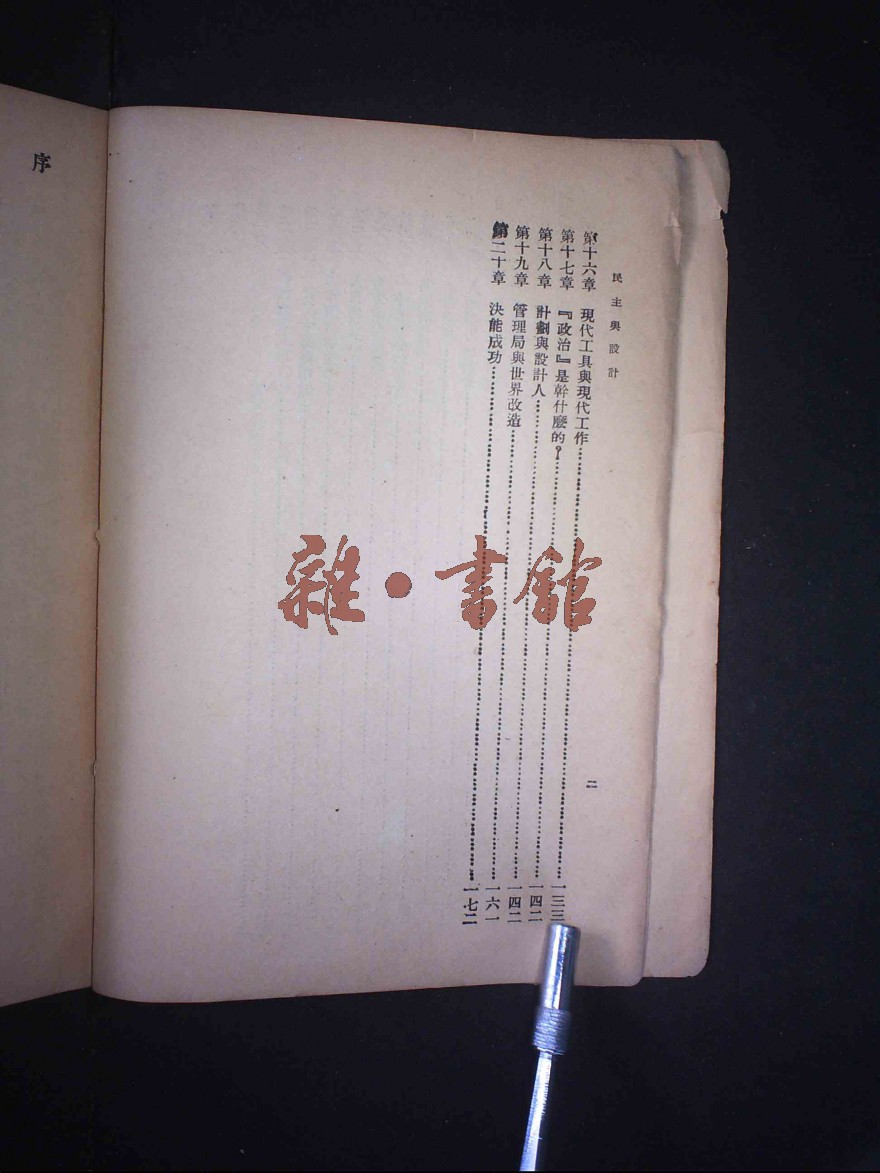 民主與設計
二
第十六章 現代工具與現代工作……一三三
第十七章 『政治』是幹什麼的？……一四二
第十八章 計劃與設計人……一四二
第十九章 管理局與世界改造……一六一
第二十章 決能成功……一七二
序
雜・書館